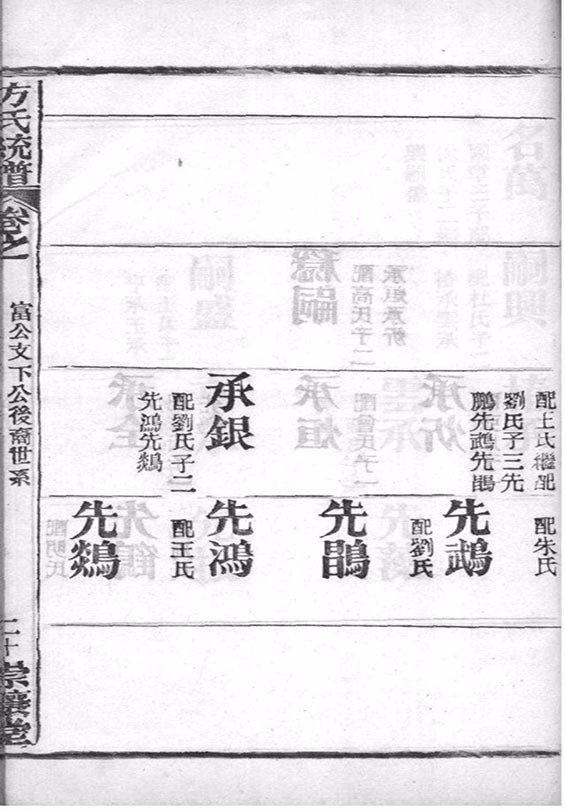 配王氏繼配
劉氏子三先
鵬先鵡先
承銀
配劉氏子二
先鴻先
配朱氏
先鵡
配劉氏
先
先鴻
配王氏
先
方氏統譜
卷之
富公文下公後裔世系
二十
崇讓堂